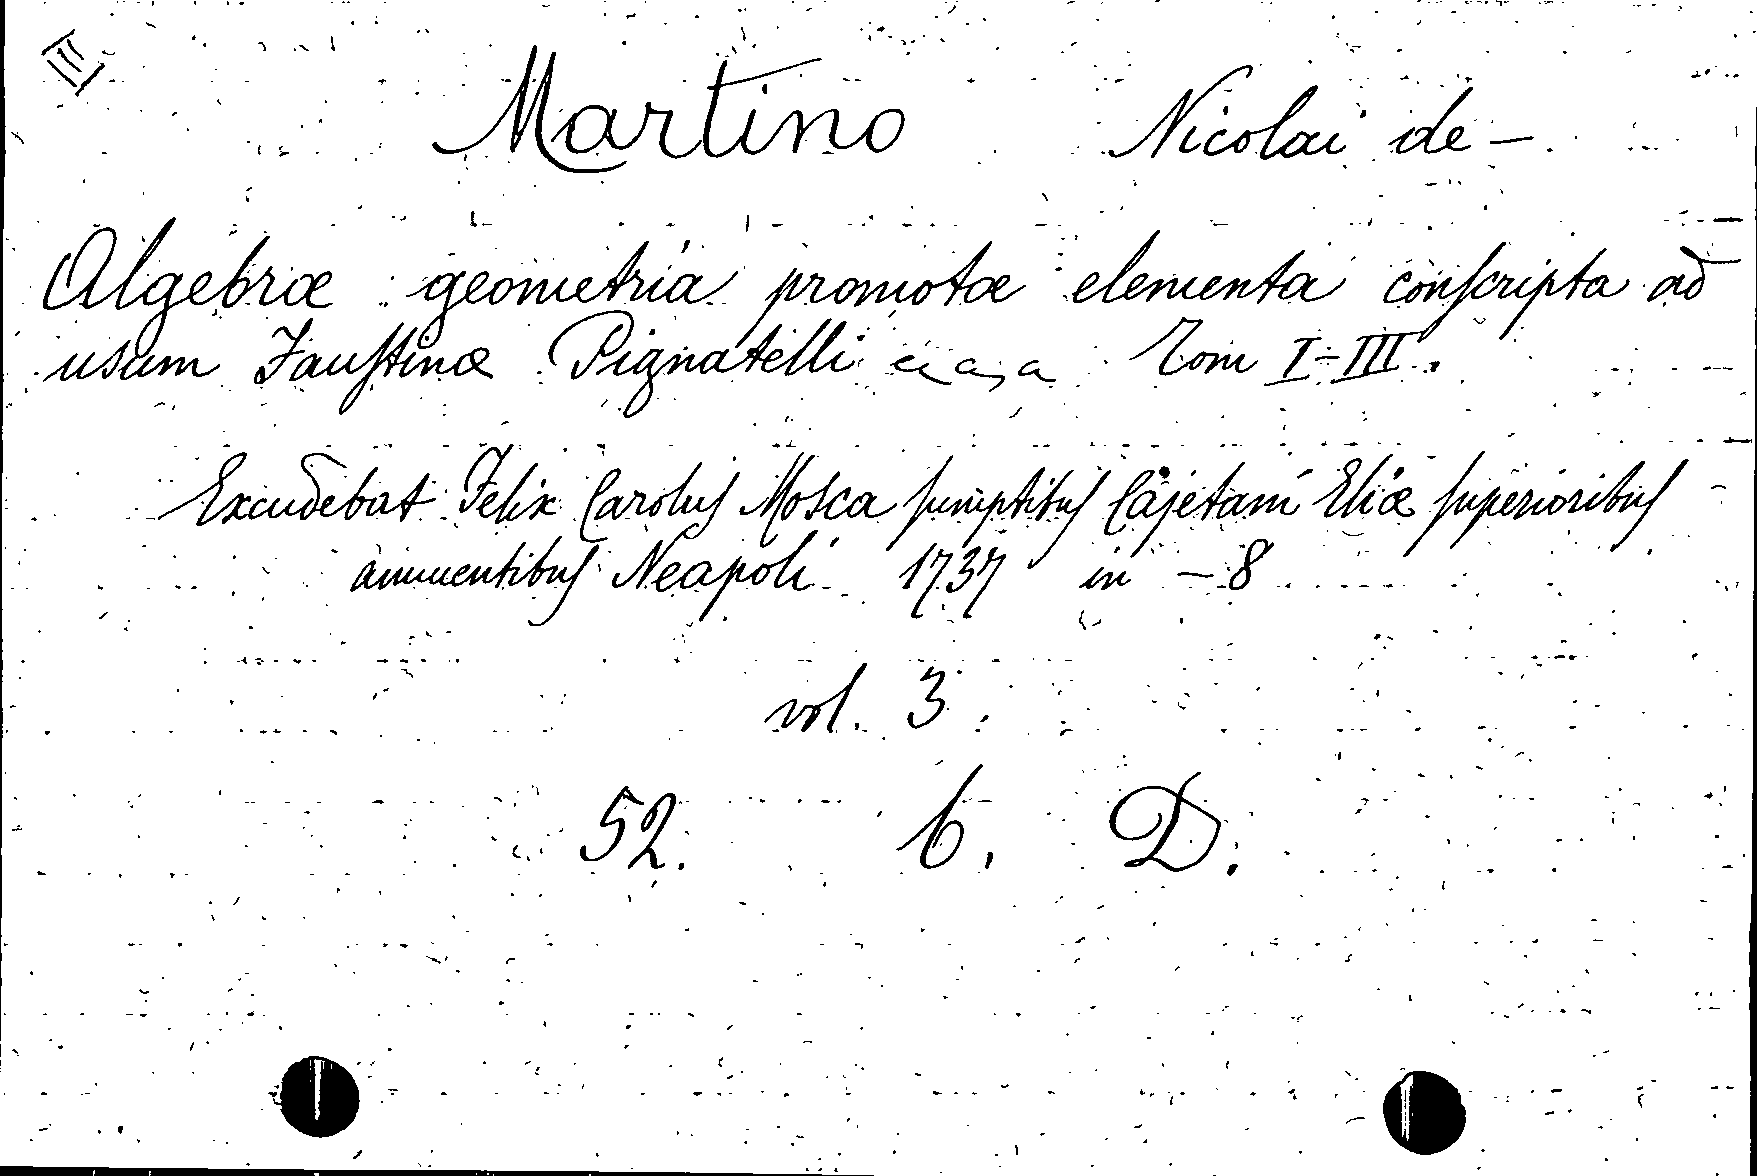 III
Martino Nicolai de –
Algebræ geometria promotæ elementa conscripta ad
usum Faustinæ Pignatelli Tom I–III.
Excudebat Felix Carolus Mosca sumptibus Cajetani Eliæ superioribus
annuentibus Neapoli 1737 in – 8
vol. 3.
52. 6. D.